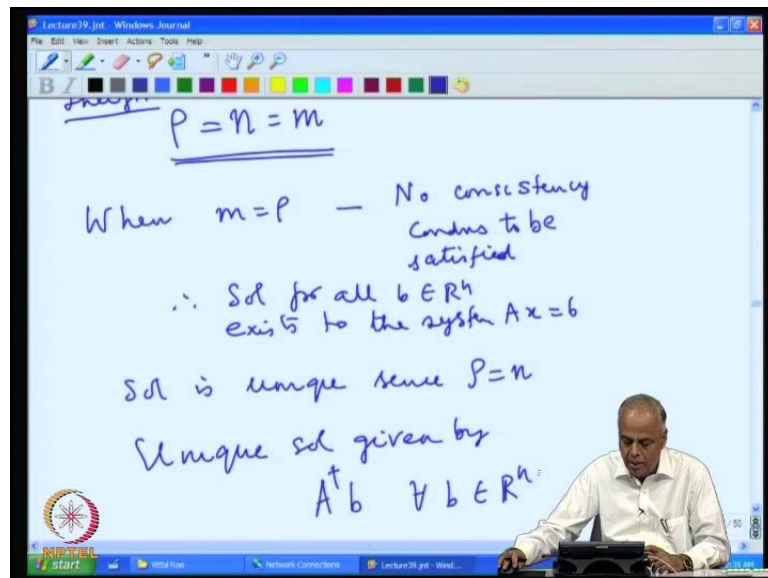 Lecture39.jnt - Windows Journal
File Edit View Insert Actions Tools Help
B I
ρ = n = m
When m = ρ — No consistency
condns to be
satisfied
∴ Sol for all b ∈ Rⁿ
exists to the system Ax = b
Sol is unique sence ρ = n
Unique sol given by
A†b ∀ b ∈ Rⁿ
NPTEL
start Vittal Rao Network Connections Lecture39.jnt - Wind...